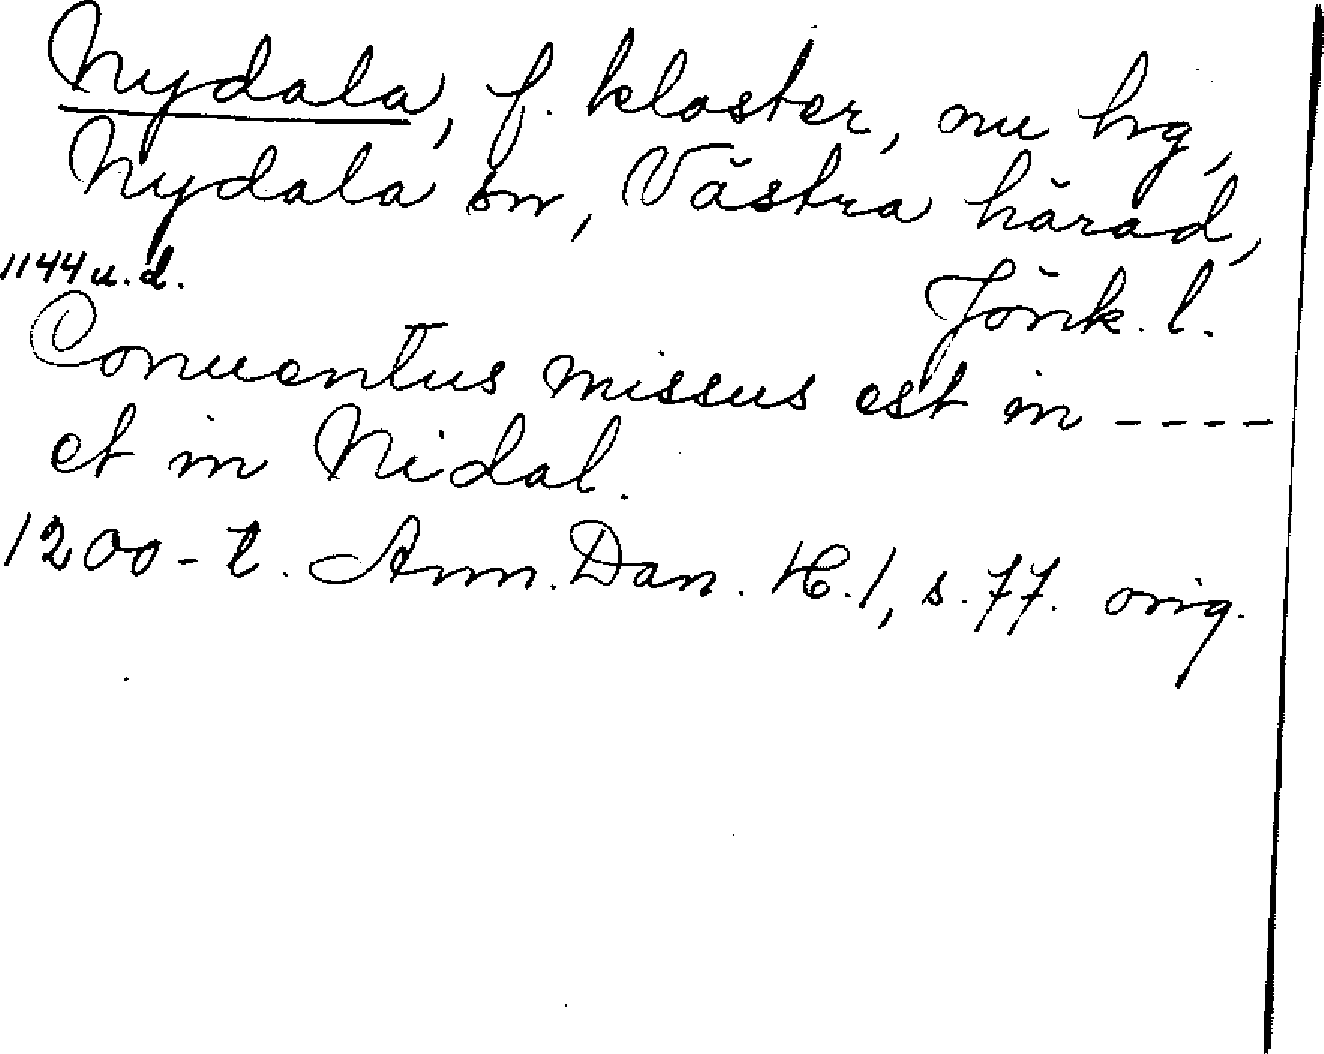 Nydala, f. kloster, nu hg,
Nydala sn, Västra härad,
Jönk. l.
1144 u. d.
Conuentus missus est in ----
et in Nidal.
1200-t. Ann. Dan. H. 1, s. 77. orig.